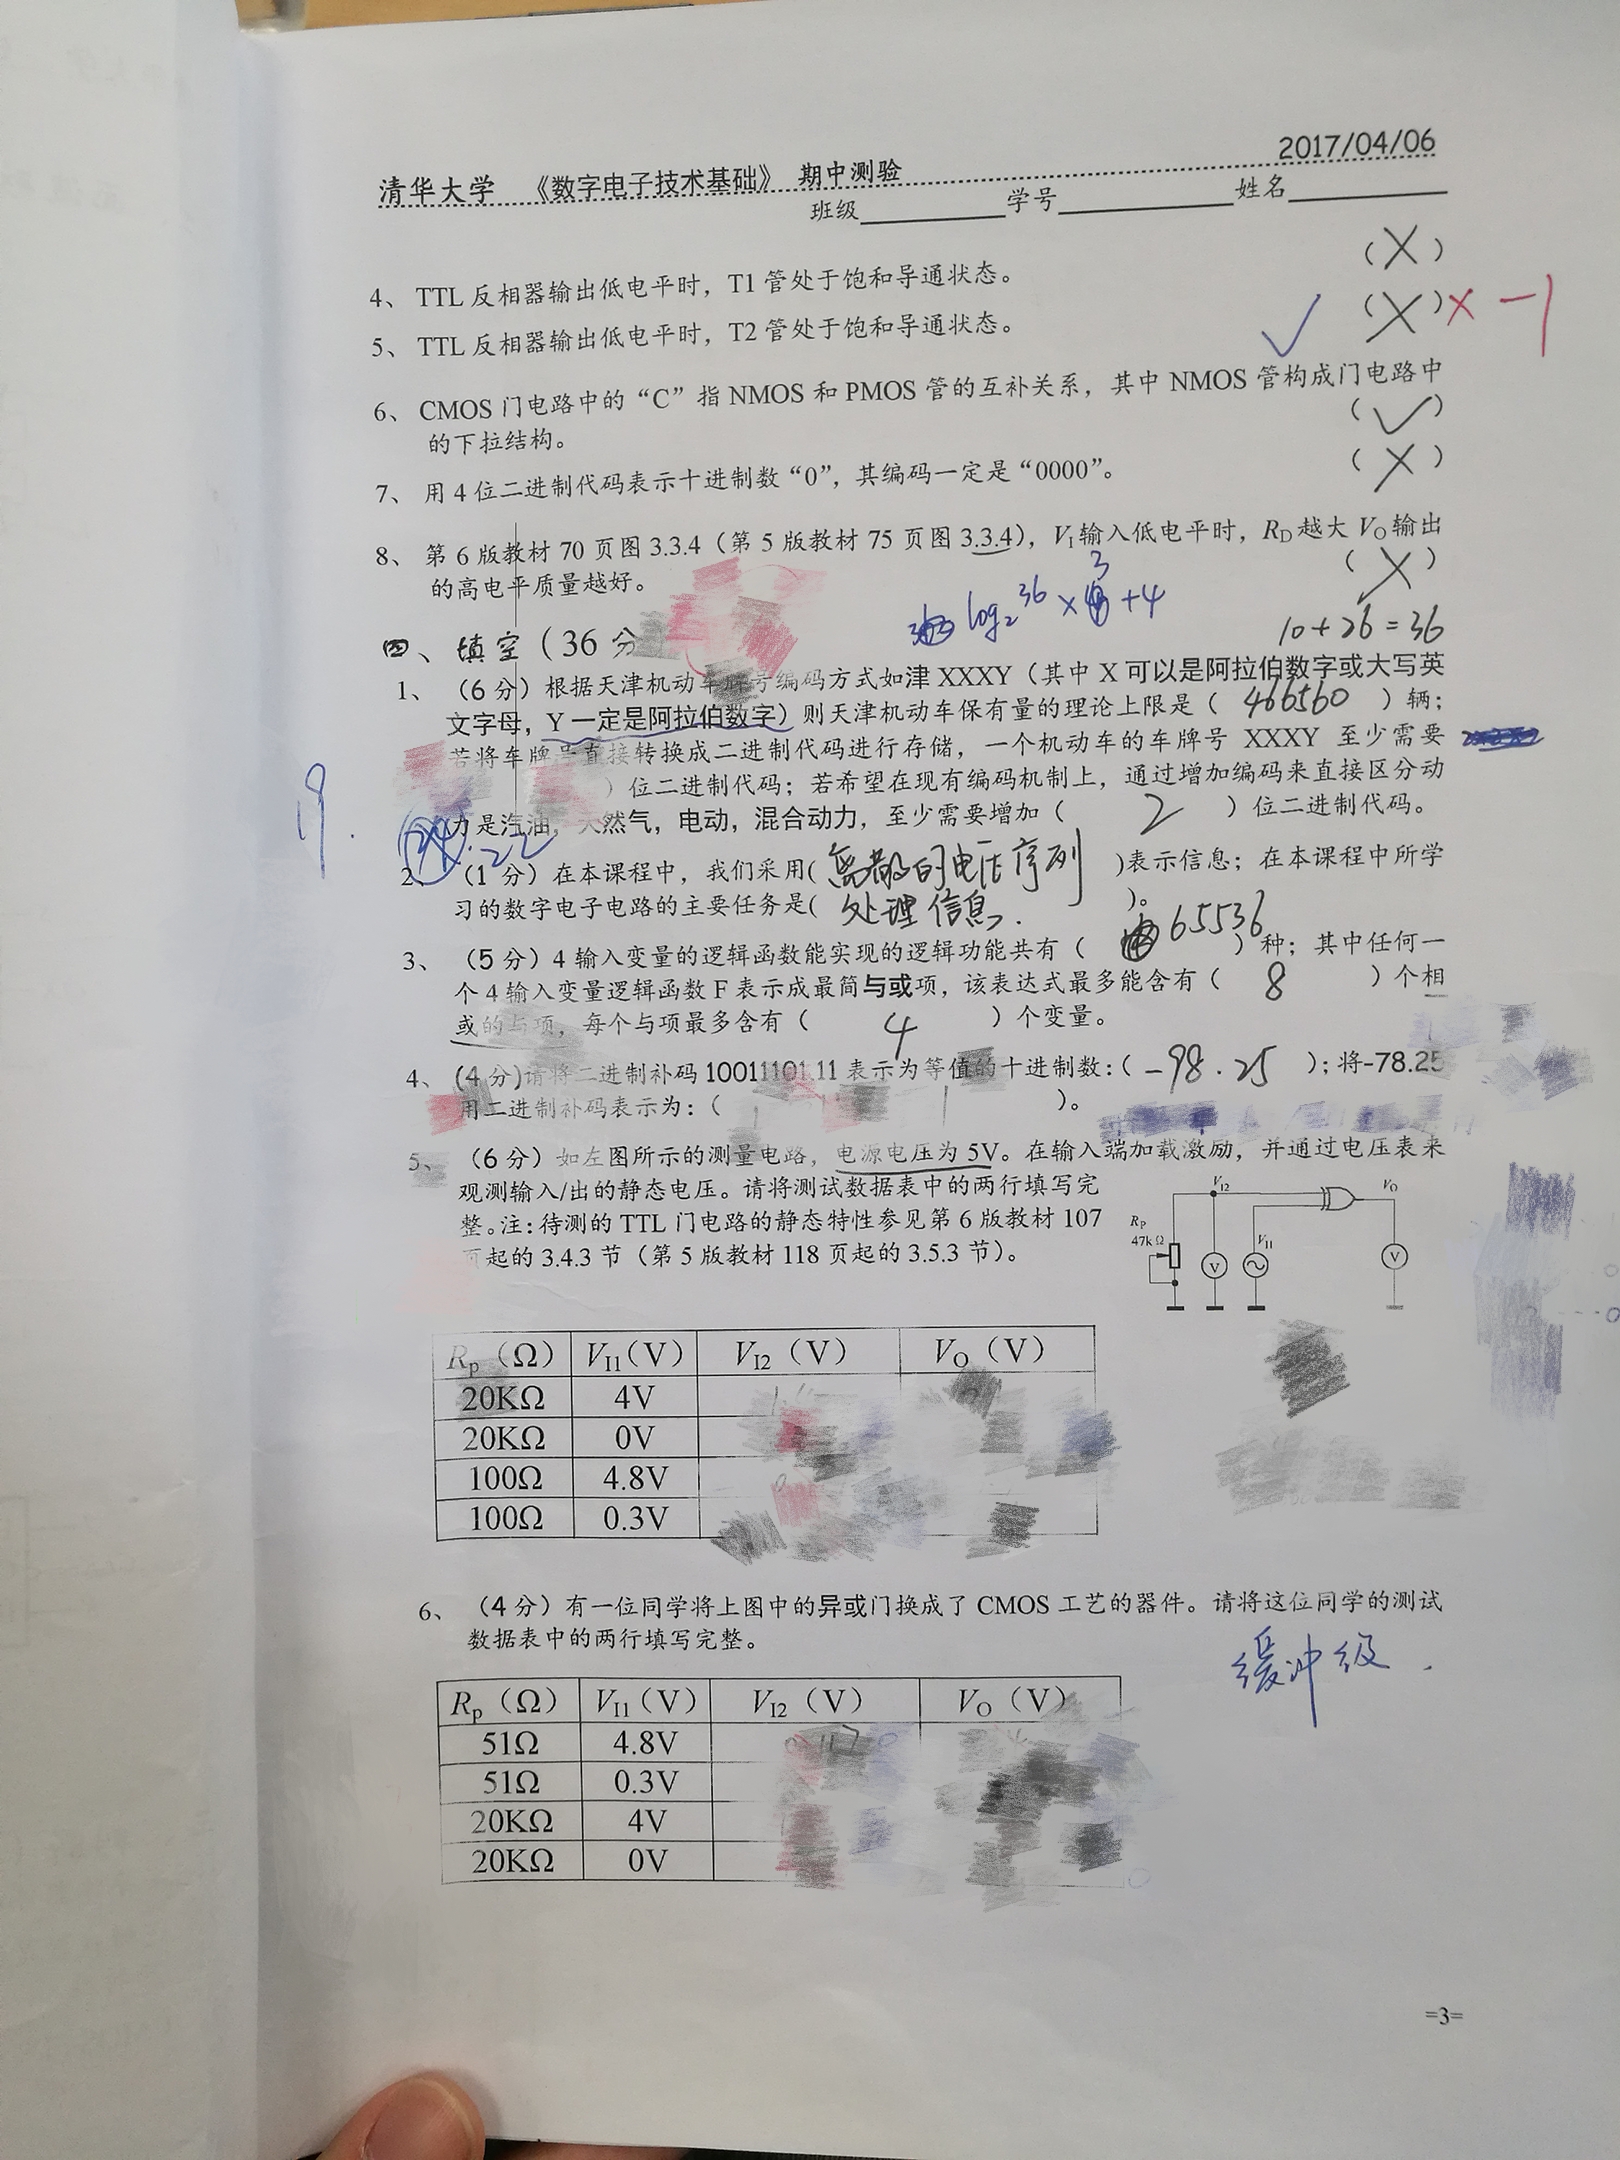 2017/04/06
清华大学 《数字电子技术基础》 期中测验
班级 学号 姓名
4、TTL 反相器输出低电平时，T1 管处于饱和导通状态。 (X)
5、TTL 反相器输出低电平时，T2 管处于饱和导通状态。 ✓ (X) × -1
6、CMOS 门电路中的“C”指 NMOS 和 PMOS 管的互补关系，其中 NMOS 管构成门电路中
的下拉结构。 (✓)
7、用 4 位二进制代码表示十进制数“0”，其编码一定是“0000”。 (X)
8、第 6 版教材 70 页图 3.3.4（第 5 版教材 75 页图 3.3.4），VI 输入低电平时，RD 越大 VO 输出
的高电平质量越好。 (X)
log₂36 × 3 + 4
10+26=36
四、填空（36 分
1、（6 分）根据天津机动车牌号编码方式如津 XXXY（其中 X 可以是阿拉伯数字或大写英
文字母，Y 一定是阿拉伯数字）则天津机动车保有量的理论上限是（ 466560 ）辆；
若将车牌号直接转换成二进制代码进行存储，一个机动车的车牌号 XXXY 至少需要
）位二进制代码；若希望在现有编码机制上，通过增加编码来直接区分动
力是汽油，天然气，电动，混合动力，至少需要增加（ 2 ）位二进制代码。
19.
22
2、（1 分）在本课程中，我们采用( 离散的电压序列 )表示信息；在本课程中所学
习的数字电子电路的主要任务是( 处理信息. )。
3、（5 分）4 输入变量的逻辑函数能实现的逻辑功能共有（ 65536 ）种；其中任何一
个 4 输入变量逻辑函数 F 表示成最简与或项，该表达式最多能含有（ 8 ）个相
或的与项，每个与项最多含有（ 4 ）个变量。
4、(4 分)请将二进制补码 10011101.11 表示为等值的十进制数：( -98.25 )；将-78.25
用二进制补码表示为：( )。
5、（6 分）如左图所示的测量电路，电源电压为 5V。在输入端加载激励，并通过电压表来
观测输入/出的静态电压。请将测试数据表中的两行填写完
整。注：待测的 TTL 门电路的静态特性参见第 6 版教材 107
页起的 3.4.3 节（第 5 版教材 118 页起的 3.5.3 节）。
VI2 VO
RP
47kΩ VI1
V V
Rp（Ω） VI1（V） VI2（V） VO（V）
20KΩ 4V
20KΩ 0V
100Ω 4.8V
100Ω 0.3V
6、（4 分）有一位同学将上图中的异或门换成了 CMOS 工艺的器件。请将这位同学的测试
数据表中的两行填写完整。
缓冲级.
Rp（Ω） VI1（V） VI2（V） VO（V）
51Ω 4.8V
51Ω 0.3V
20KΩ 4V
20KΩ 0V
=3=